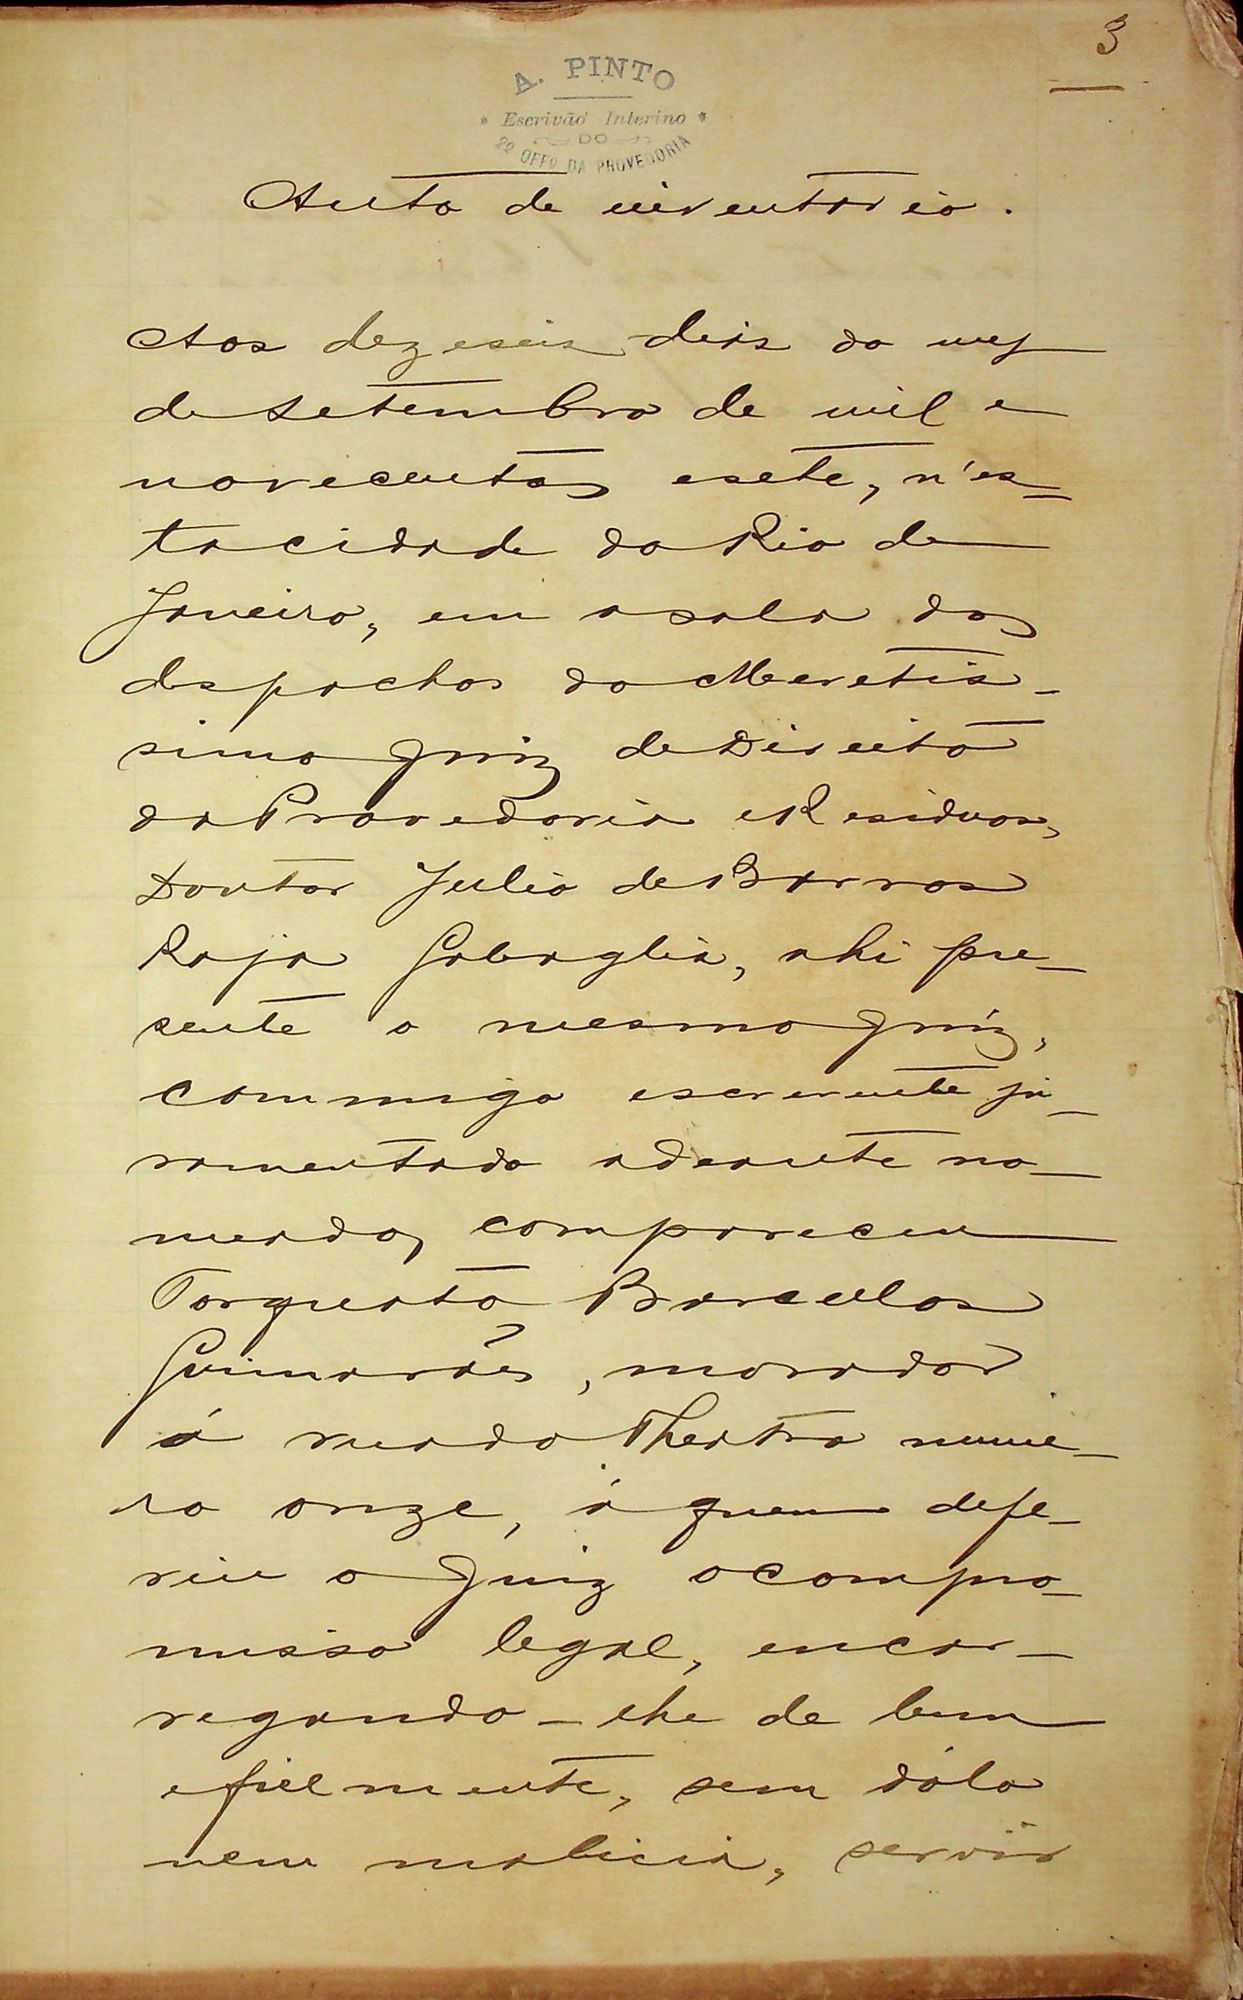 3
A. PINTO
Escrivão Interino
DO
2º OFFº DA PROVEDORIA
Auto de inventario.
Aos dezeseis dias do mez
de Setembro de mil e
novecentos e sete, n'es-
ta cidade do Rio de
Janeiro, em a sala dos
despachos do Meretis-
simo Juiz de Direito
da Provedoria e Residuos,
Doutor Julio de Barros
Raja Gabaglia, ahi pre-
sente o mesmo Juiz,
commigo escrevente ju-
ramentado adeante no-
meado, compareceu
Torquato Barcellos
Guimarães, morador
á rua do Theatro nume-
ro onze, á quem defe-
riu o Juiz o compro-
misso legal, encar-
regando-lhe de bem
e fielmente, sem dólo
nem malicia, servir